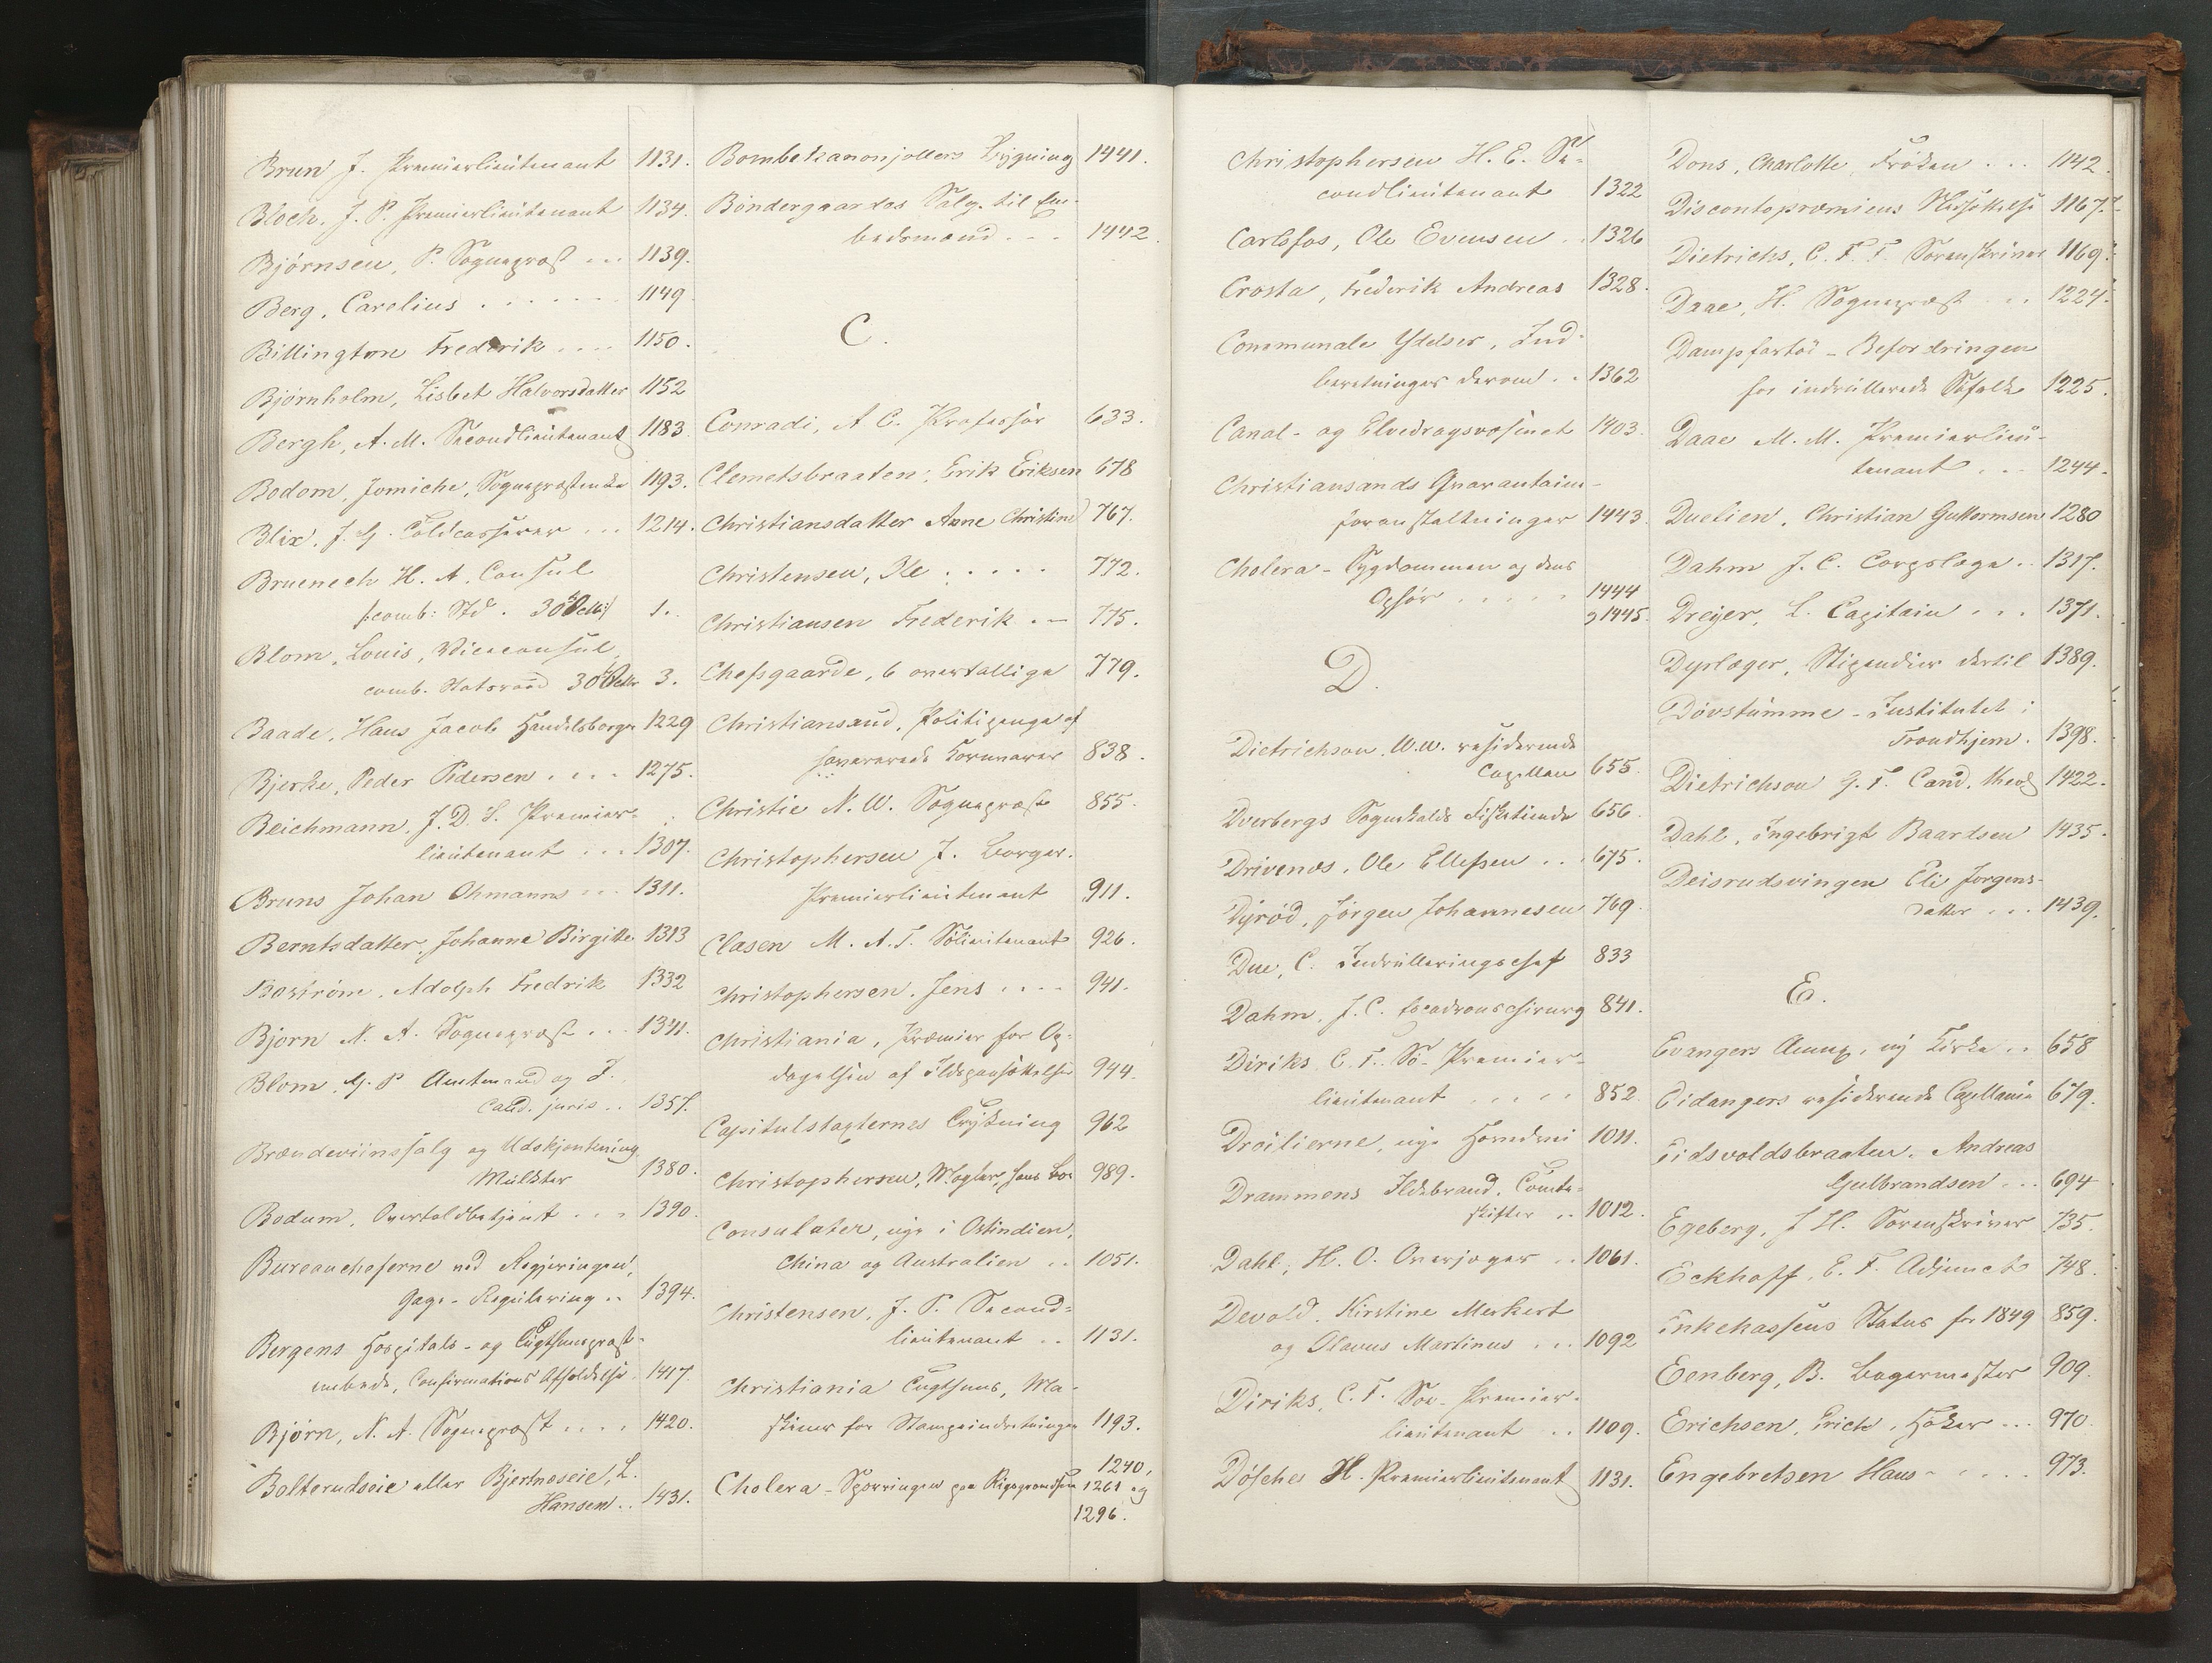 Brun J. Premierlieutenant 1131.
Bloch, J. P. Premierlieutenant 1134.
Bjørnsen, P. Sognepræst ... 1139.
Berg, Carelius ...... 1149
Billington Frederik .... 1150.
Bjørnholm, Lisbet Halvorsdatter 1152
Bergh, A. M. Secondlieutenant 1183
Bodom, Jomiche, Sognepræstenke 1193.
Blix, J. G. Toldcasserer ... 1214.
Bruenech H. A. Consul
comb: Std. 30 1.
Blom, Louis, Viceconsul,
comb. Statsraad 30 3.
Baade, Hans Jacob Handelsborger 1229
Bjerke, Peder Pedersen .... 1275.
Beichmann, J. D. S. Premier-
lieutenant ... 1307.
Bruns Johan Ohmann ... 1311.
Berntsdatter, Johanne Birgitte 1313
Boström, Adolph Fredrik 1332
Bjørn N. A. Sognepræst ... 1341.
Blom, G. P. Amtmand og J.
Cand. juris .. 1357.
Brændeviinssalg og Udskjenkning
Mulkter 1380.
Bodum, Overtoldbetjent ... 1390.
Bureaucheferne ved Regjeringen,
Gage-Regulering .. 1394.
Bergens Hospitals- og Tugthuuspræst-
embede, Confirmations Afholdelse 1417.
Bjørn, N. A. Sognepræst .... 1420.
Bolterudseie eller Bjertnæseie, L.
Hansen .. 1431.
Bombekanonjollers Bygning 1441.
Bøndergaardes Salg til Em-
bedsmænd ... 1442.
C.
Conradi, A C. Professor 633.
Clemetsbraaten, Erik Eriksen 678
Christiansdatter Anne Christine 767.
Christensen, Ole ..... 772.
Christiansen Frederik .. 775.
Chefsgaarde, 6 overtallige 779.
Christiansand, Politipenge af
Kornvarer 838.
Christie N. W. Sognepræst 855.
Christophersen J. Borger.
Premierlieutenant 911.
Clasen M. A. F. Sölieutenant 926.
Christophersen, Jens .... 941.
Christiania, Præmier for Op-
dagelsen af Ildspaasættelser 944.
Capitulstaxternes Trykning 962
Christophersen, Mægler, hans Bo 989.
Consulater, nye i Ostindien,
China og Australien .. 1051.
Christensen, J. P. Second-
lieutenant .. 1131.
Christiania Tugthuus, Ma-
skiner for Stampeindretningen 1193.
Cholera-Sperringen paa Rigsgrændsen 1240, 1261 og
1296.
Christophersen H. E. Se-
condlieutenant 1322
Carlsfos, Ole Evensen .. 1326
Crosta, Frederik Andreas 1328.
Communale Ydelser, Ind-
beretninger derom .. 1362
Canal- og Elvedragsvæsenet 1403.
Christiansands Qvarantaine-
foranstaltninger 1443.
Cholera-Sygdommen og dens
Ophør ..... 1444
og 1445.
D.
Dietrichson, W. W. residerende
Capellan 655.
Dverbergs Sognekalds Fisketiende 656.
Drivenes, Ole Ellefsen ... 675.
Dyrød, Jørgen Johannesen 769.
Due, C. Indrulleringschef 833
Dahm, J. C. Escadronschirurg 841.
Diriks C. F. Sö-Premier-
lieutenant ..... 852.
Droilierne, nye Horndrei 1011.
Drammens Ildebrand, Tomte-
skifter .. 1012.
Dahl, H. O. Overjæger .. 1061.
Devold, Kirstine Merkert
og Olavus Martinus ... 1092
Diriks, C. F. Söe-Premier-
lieutenant .. 1109.
Dösches H. Premierlieutenant 1131.
Dons, Charlotte, Frøken ... 1142.
Discontopræmiens Nedsættelse 1167.
Dietrichs, C. F. F. Sorenskriver 1169.
Daae, H. Sognepræst ... 1224.
Dampfartöi-Befordringen
for indrullerede Söfolk 1225.
Daae M. M. Premierlieu-
tenant ... 1244.
Duelien, Christian Guttormsen 1280
Dahm J. C. Corpslæge .. 1317.
Dreyer, L. Capitain ... 1371.
Dyrlæger, Stipendier dertil 1389.
Dövstumme-Institutet i
Trondhjem. 1398.
Dietrichson G. F. Cand. theol. 1422.
Dahl, Ingebrigt Baardsen 1435.
Deisrudsvingen Eli Jørgens-
datter ... 1439.
E.
Evangers Annex, ny Kirke .. 658
Eidangers residerende Capellanie 679.
Eidsvoldsbraaten, Andreas
Gulbrandsen ... 694
Egeberg, J H. Sorenskriver 735.
Eckhoff, E. F. Adjunct 748.
Enkekassens Status for 1849 859.
Eenberg, B. Bagermester 909.
Erichsen, Erich, Høker ... 970.
Engebretsen Hans ..... 973.